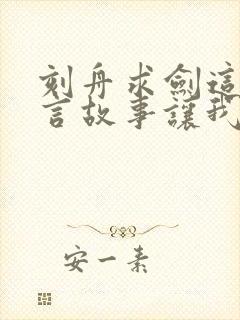 刻舟求劍這
言故事讓我
安一素